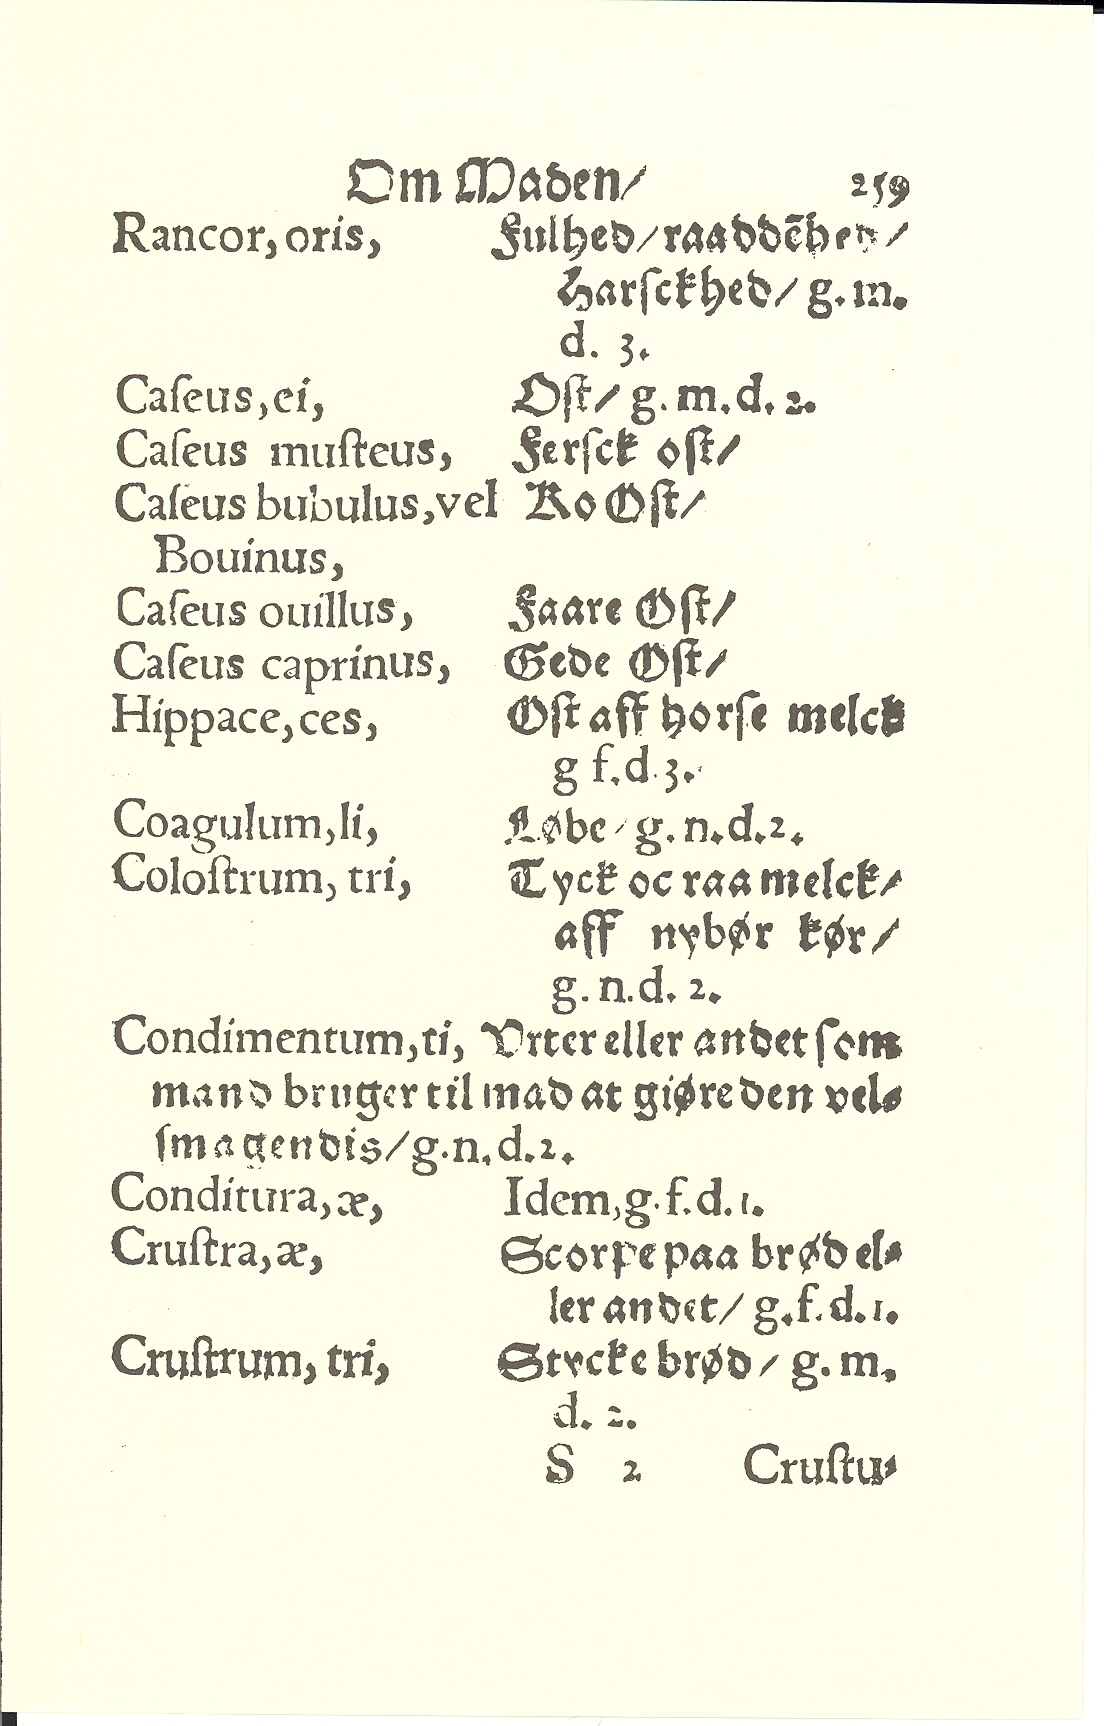 Om Maden/ 259
Rancor, oris, Fulhed/raaddēhed/
Harſckhed/ g. m.
d. 3.
Caſeus, ei, Oſt/ g. m. d. 2.
Caſeus muſteus, Ferſck oſt/
Caſeus bubulus, vel Ko Oſt/
Bouinus,
Caſeus ouillus, Faare Oſt/
Caſeus caprinus, Gede Oſt/
Hippace, ces, Oſt aff horſe melck
g f. d. 3.
Coagulum, li, Løbe/ g. n. d. 2.
Coloſtrum, tri, Tyck oc raa melck/
aff nybør kør/
g. n. d. 2.
Condimentum, ti, Vrter eller andet ſom
mand bruger til mad at giøre den vel-
ſmagendis/g. n. d. 2.
Conditura, æ, Idem, g. f. d. 1.
Cruſtra, æ, Scorpe paa brød el-
ler andet/ g. f. d. 1.
Cruſtrum, tri, Stycke brød/ g. m.
d. 2.
S 2 Cruſtu-